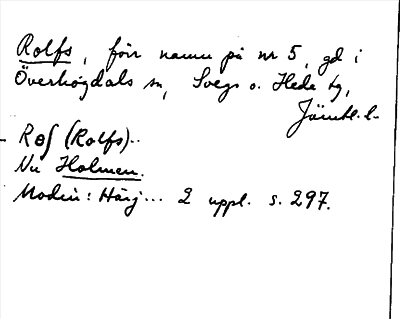 Rolfs, förr namn på nr 5, gd i
Överhogdals sn, Svegs o. Hede tg,
Jämtl. l.
Rof (Rolfs)..
Nu Holmen.
Modin: Härj... 2 uppl. s. 297.